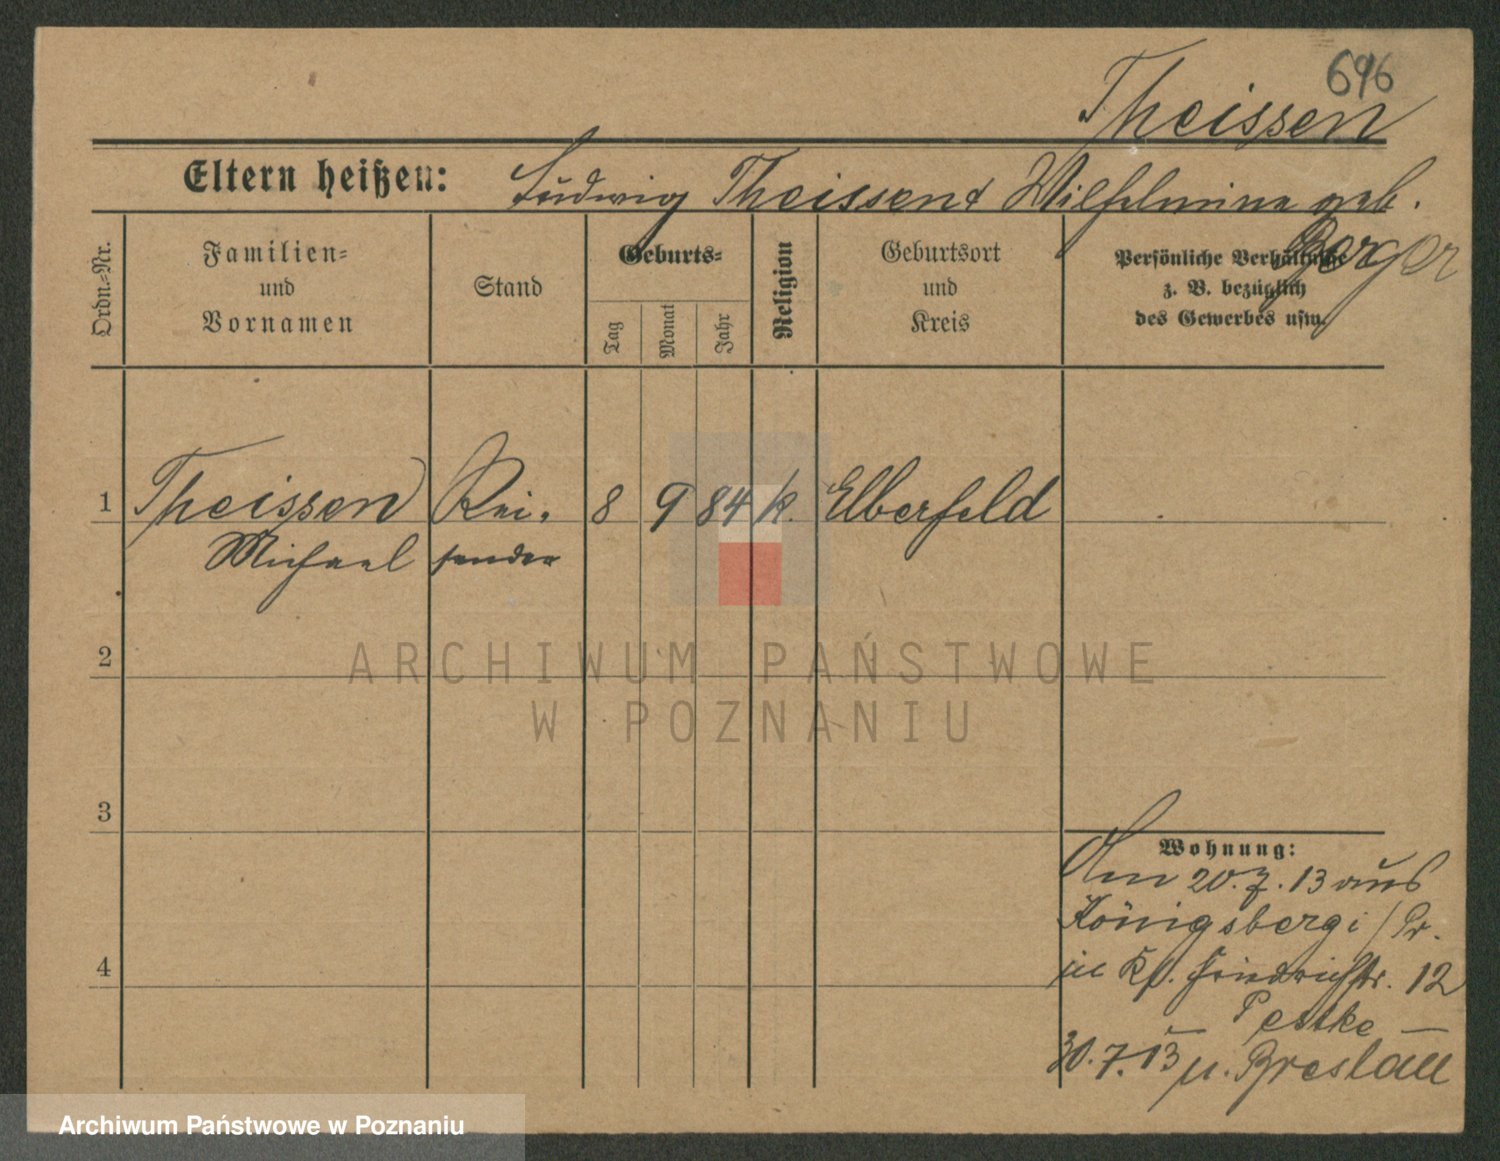 696
Theissen
Eltern heißen: Ludwig Theissen & Wilhelmina geb.
Berger
Ordn.-Nr.
Familien-
und
Vornamen
Stand
Geburts-
Tag
Monat
Jahr
Religion
Geburtsort
und
Kreis
Persönliche Verhältnisse
z. B. bezüglich
des Gewerbes usw.
1 Theissen Rei- 8 9 84 k. Elberfeld
Michael sender
2
3
4
Wohnung:
Am 20.7.13 aus
Königsberg i/Pr.
Friedrichstr. 12
Pestke
30.7.13 n. Breslau
ARCHIWUM PAŃSTWOWE
W POZNANIU
Archiwum Państwowe w Poznaniu